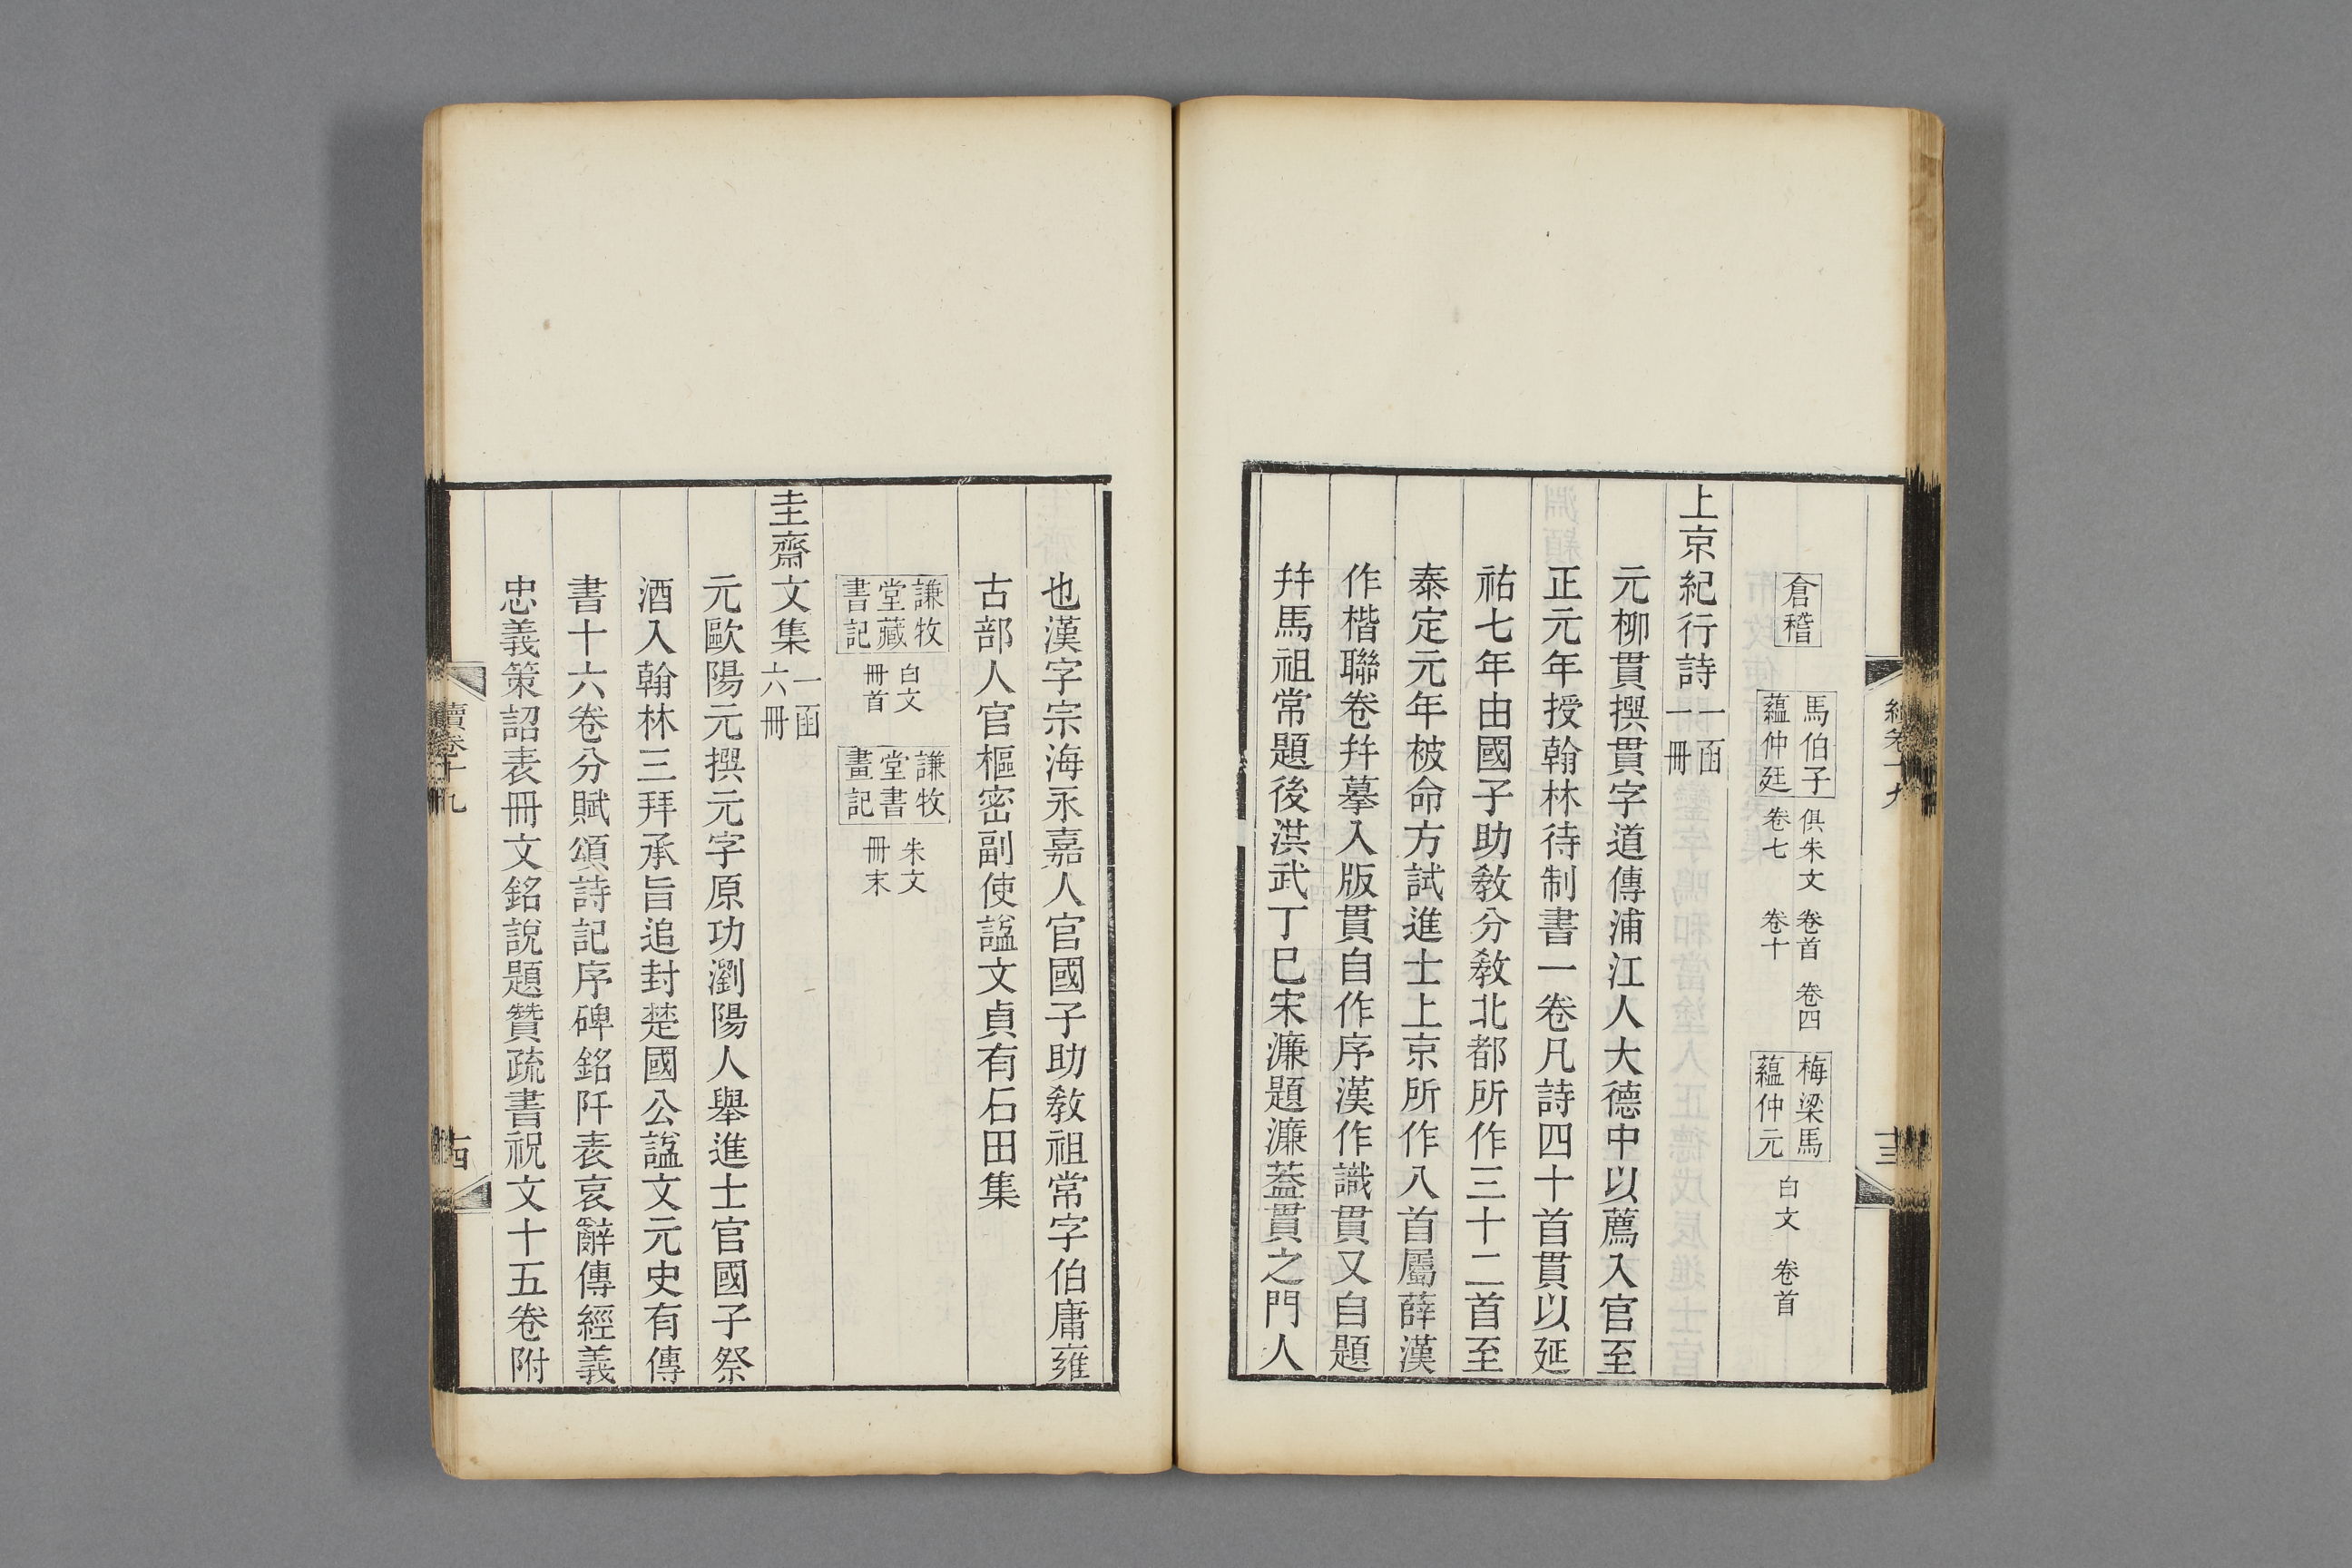 續卷十九
十三
倉稽
馬伯子
蘊仲廷
俱朱文 卷首 卷四
卷七 卷十
梅梁馬
蘊仲元
白文 卷首
上京紀行詩
一函
一冊
元柳貫撰貫字道傳浦江人大德中以薦入官至
正元年授翰林待制書一卷凡詩四十首貫以延
祐七年由國子助教分教北都所作三十二首至
泰定元年被命方試進士上京所作八首屬薛漢
作楷聯卷幷摹入版貫自作序漢作識貫又自題
幷馬祖常題後洪武丁巳宋濂題濂葢貫之門人
也漢字宗海永嘉人官國子助教祖常字伯庸雍
古部人官樞密副使諡文貞有石田集
謙牧
堂藏
書記
白文
冊首
謙牧
堂書
畫記
朱文
冊末
圭齋文集
一函
六冊
元歐陽元撰元字原功瀏陽人舉進士官國子祭
酒入翰林三拜承旨追封楚國公諡文元史有傳
書十六卷分賦頌詩記序碑銘阡表哀辭傳經義
忠義策詔表冊文銘說題贊疏書祝文十五卷附
續卷十九
十四